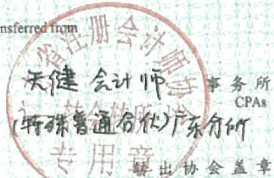 nsferred from
天健会计师事务所
CPAs
(特殊普通合伙)广东分所
专用章
转出协会盖章